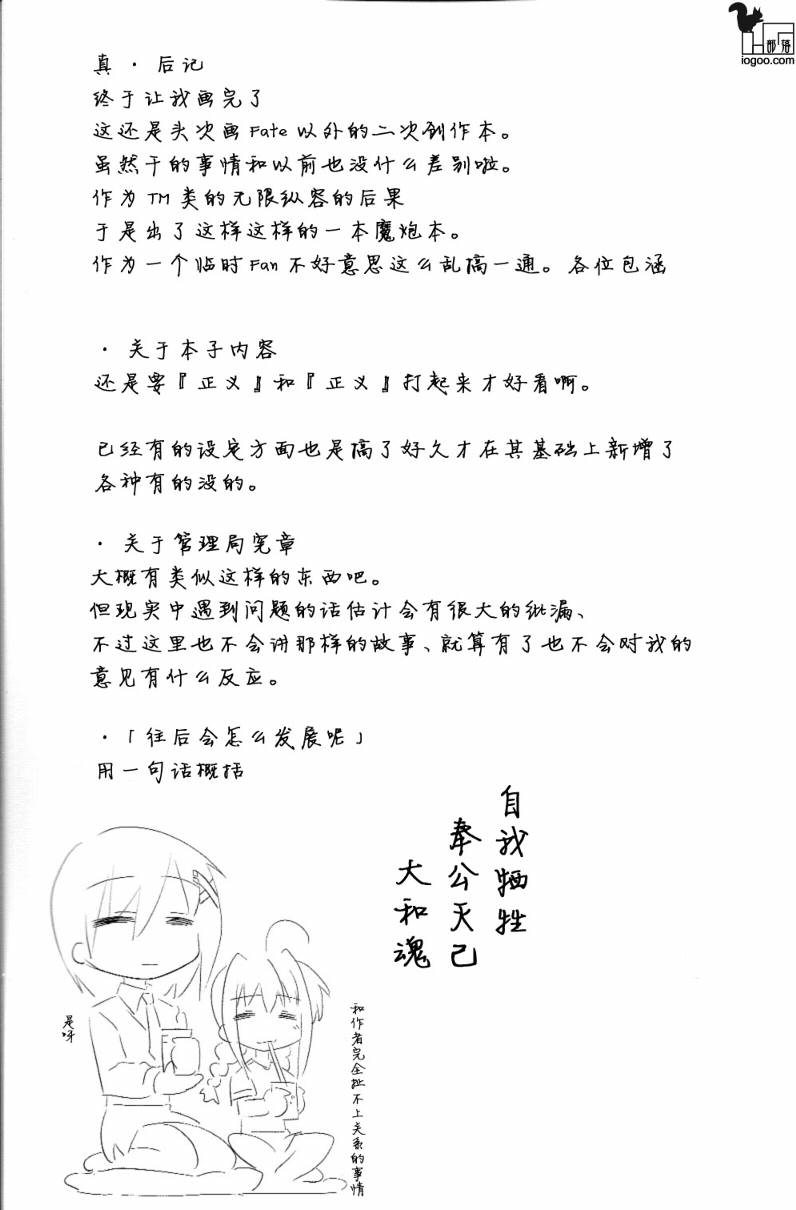 部落
iogoo.com
真·后记
终于让我画完了
这还是头次画Fate以外的二次创作本。
虽然干的事情和以前也没什么差别啦。
作为TM类的无限纵容的后果
于是出了这样这样的一本魔炮本。
作为一个临时Fan不好意思这么乱搞一通。各位包涵
·关于本子内容
还是要『正义』和『正义』打起来才好看啊。
已经有的设定方面也是搞了好久才在其基础上新增了
各种有的没的。
·关于管理局宪章
大概有类似这样的东西吧。
但现实中遇到问题的话估计会有很大的纰漏、
不过这里也不会讲那样的故事、就算有了也不会对我的
意见有什么反应。
·「往后会怎么发展呢」
用一句话概括
自我牺牲
奉公灭己
大和魂
和作者完全扯不上关系的事情
是呀